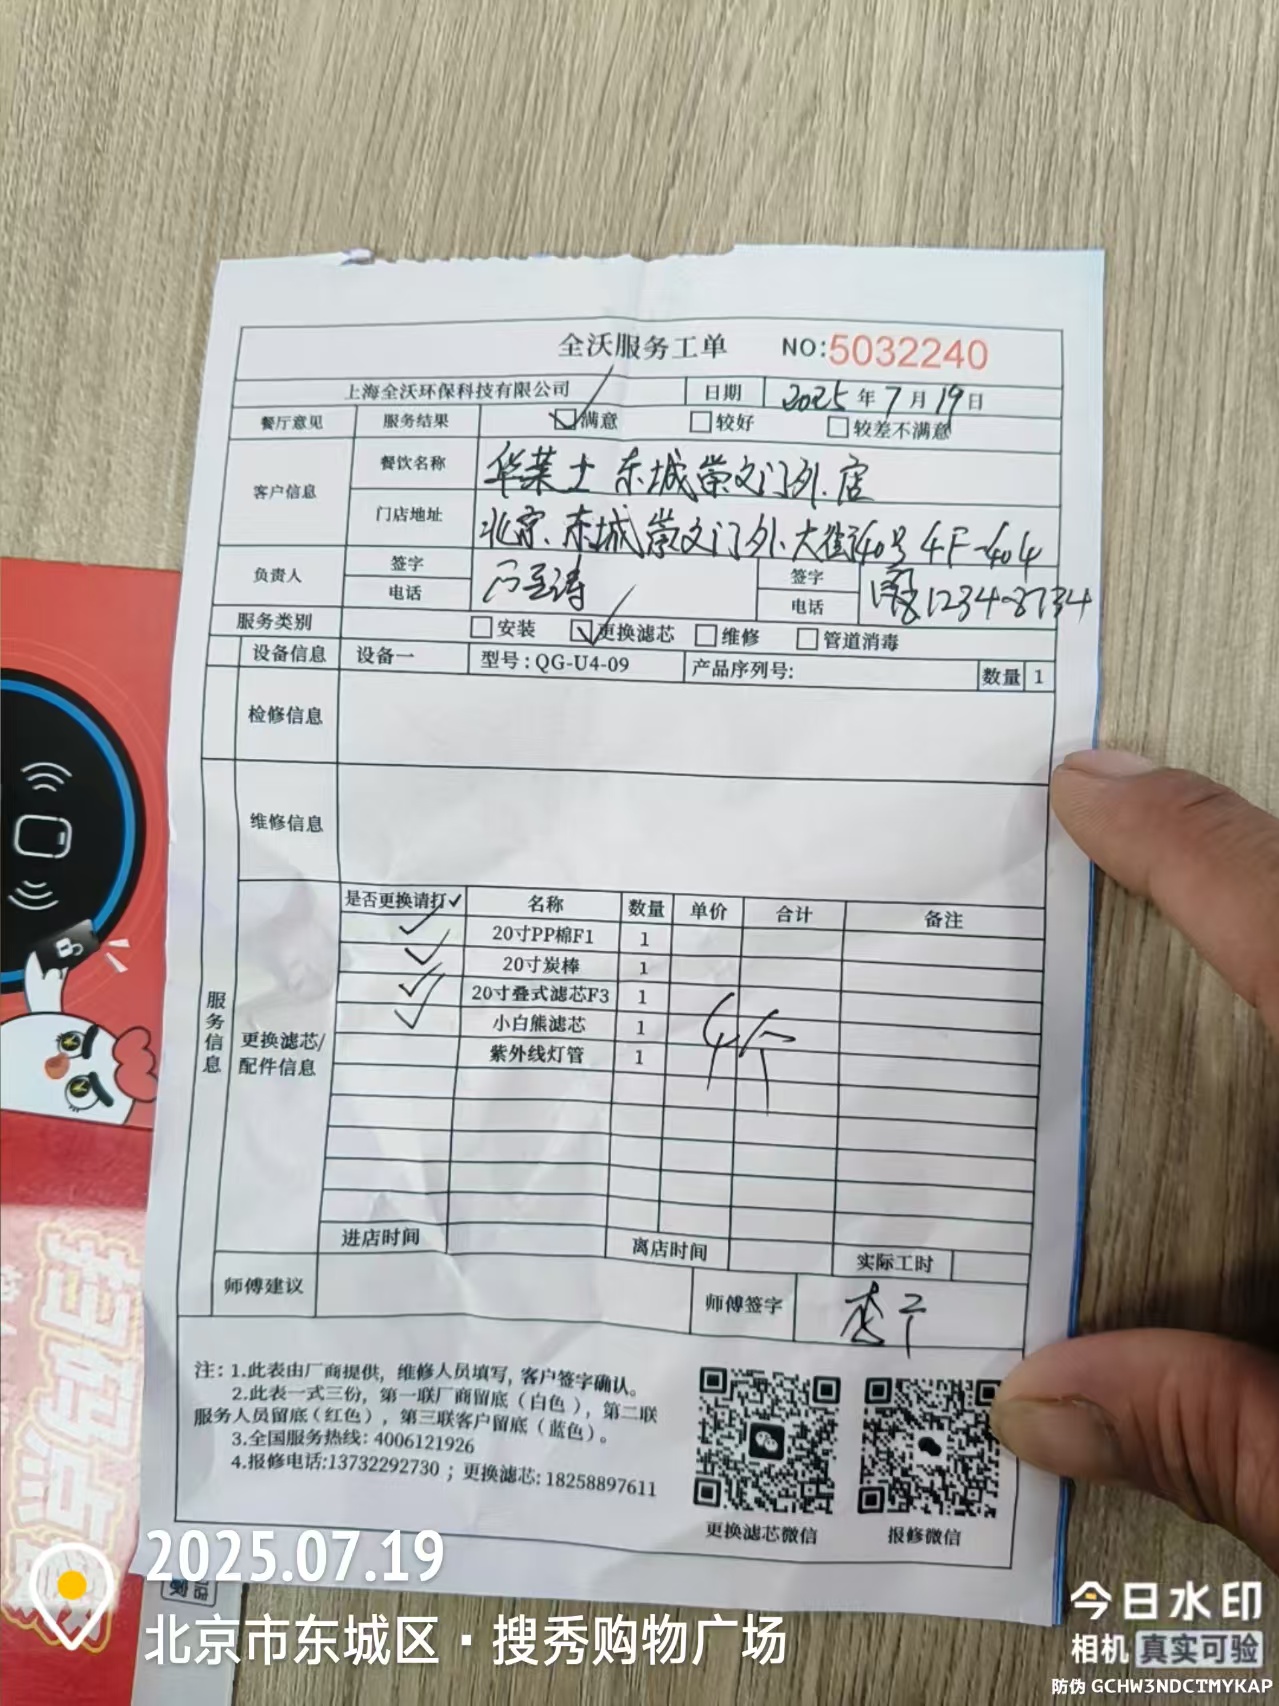 全沃服务工单 NO:5032240
上海全沃环保科技有限公司 日期 2025年7月19日
餐厅意见 服务结果 ☑满意 □较好 □较差不满意
客户信息 餐饮名称 华莱士 东城崇文门外店
门店地址 北京、东城崇文门外大街40号4F-404
负责人 签字 签字
电话 电话
服务类别 □安装 ☑更换滤芯 □维修 □管道消毒
设备信息 设备一 型号:QG-U4-09 产品序列号: 数量 1
检修信息
维修信息
服务信息
更换滤芯/配件信息
是否更换请打✓ 名称 数量 单价 合计 备注
✓ 20寸PP棉F1 1
✓ 20寸炭棒 1
✓ 20寸叠式滤芯F3 1
✓ 小白熊滤芯 1
紫外线灯管 1
进店时间 离店时间 实际工时
师傅建议 师傅签字
注: 1.此表由厂商提供, 维修人员填写, 客户签字确认。
2.此表一式三份, 第一联厂商留底(白色), 第二联
服务人员留底(红色), 第三联客户留底(蓝色)。
3.全国服务热线: 4006121926
4.报修电话:13732292730 ; 更换滤芯: 18258897611
更换滤芯微信 报修微信
扫码点
2025.07.19
北京市东城区·搜秀购物广场
今日水印
相机 真实可验
防伪 GCHW3NDCTMYKAP